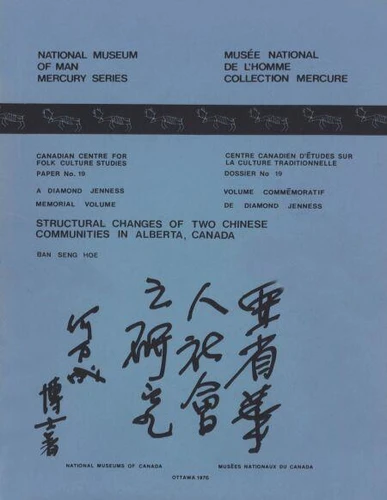 NATIONAL MUSEUM
OF MAN
MERCURY SERIES
MUSÉE NATIONAL
DE L'HOMME
COLLECTION MERCURE
CANADIAN CENTRE FOR
FOLK CULTURE STUDIES
PAPER No. 19
CENTRE CANADIEN D'ÉTUDES SUR
LA CULTURE TRADITIONNELLE
DOSSIER No 19
A DIAMOND JENNESS
MEMORIAL VOLUME
VOLUME COMMÉMORATIF
DE DIAMOND JENNESS
STRUCTURAL CHANGES OF TWO CHINESE
COMMUNITIES IN ALBERTA, CANADA
BAN SENG HOE
亞省華
人社會
之研究
何万成
博士著
NATIONAL MUSEUMS OF CANADA
MUSÉES NATIONAUX DU CANADA
OTTAWA 1976